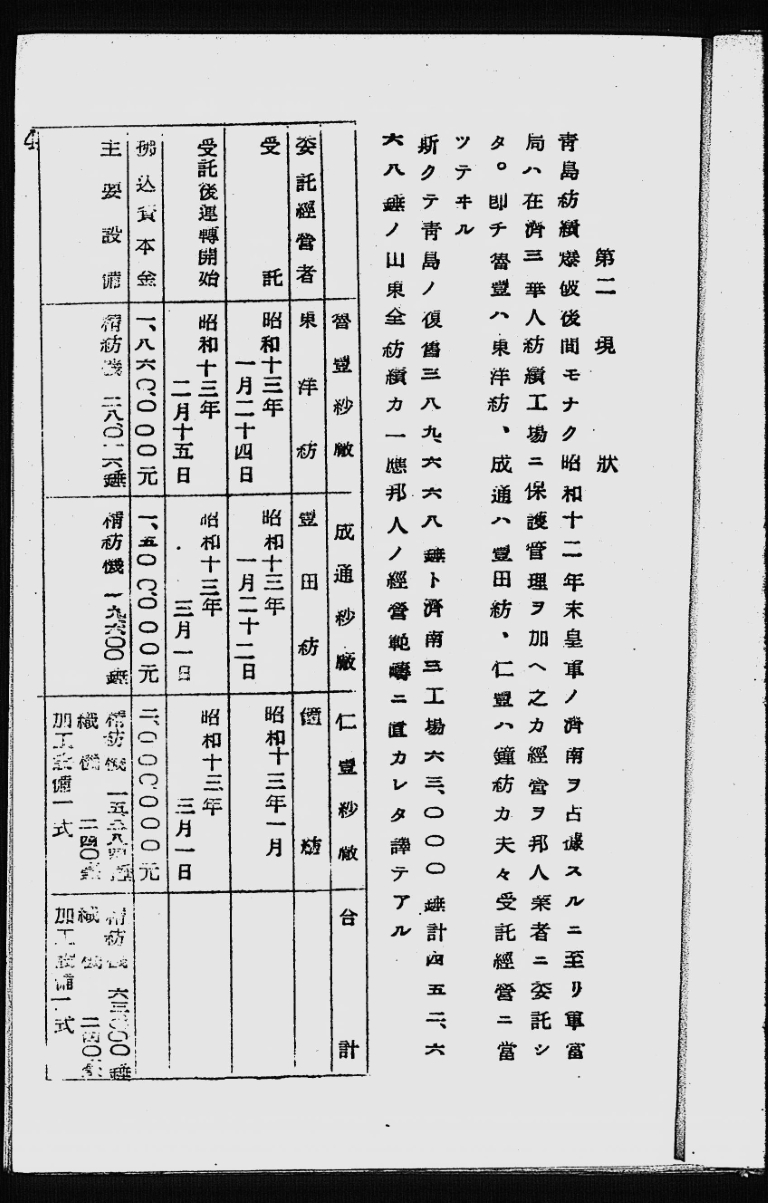 第二 現狀
青島紡績爆破後間モナク昭和十二年末皇軍ノ濟南ヲ占據スルニ至リ軍當
局ハ在濟三華人紡績工場ニ保護管理ヲ加ヘ之カ經營ヲ邦人業者ニ委託シ
タ。卽チ魯豐ハ東洋紡、成通ハ豐田紡、仁豐ハ鐘紡カ夫々受託經營ニ當
ツテヰル
斯クテ青島ノ復舊三八九、六六八錘ト濟南三工場六三、〇〇〇錘計四五二、六
六八錘ノ山東全紡績カ一應邦人ノ經營範疇ニ置カレタ譯テアル
魯豐紗廠 成通紗廠 仁豐紗廠 合計
委託經營者 東洋紡 豐田紡 鐘紡
受託 昭和十三年一月二十四日 昭和十三年一月二十二日 昭和十三年一月
受託後運轉開始 昭和十三年二月十五日 昭和十三年三月一日 昭和十三年三月一日
拂込資本金 一、八六〇、〇〇〇元 一、五〇〇、〇〇〇元 二、〇〇〇、〇〇〇元
主要設備 精紡機 二八、〇一六錘 精紡機 一九、六〇〇錘 精紡機 錘 精紡機 錘
織機 二四〇 織機 二四〇
加工設備一式 加工設備一式
4